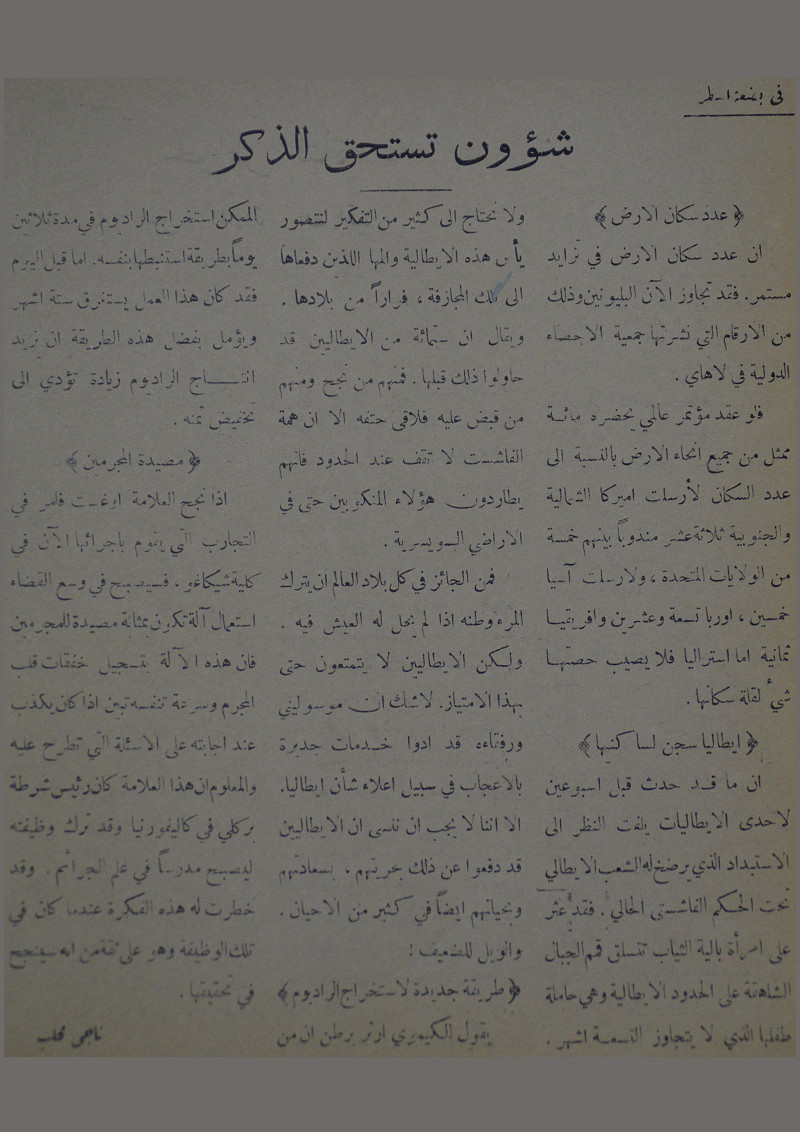 في بضعة اسطر
شؤون تستحق الذكر
﴿ عدد سكان الارض ﴾
ان عدد سكان الارض في تزايد
مستمر. فقد تجاوز الآن البليونين وذلك
من الارقام التي نشرتها جمعية الاحصاء
الدولية في لاهاي .
فلو عقد مؤتمر عالمي يحضره مائة
ممثل من جميع انحاء الارض بالنسبة الى
عدد السكان لأرسلت اميركا الشمالية
والجنوبية ثلاثة عشر مندوباً بينهم خمسة
من الولايات المتحدة ، ولارسلت آسيا
خمسين ، اوربا تسعة وعشرين وافريقيا
ثمانية اما استراليا فلا يصيب حصتها
شيءٌ لقلة سكانها .
﴿ ايطاليا سجن لساكنيها ﴾
ان ما قد حدث قبل اسبوعين
لاحدى الايطاليات يلفت النظر الى
الاستبداد الذي يرضخ له الشعب الايطالي
تحت الحكم الفاشستي الحالي . فقد عثر
على امرأة بالية الثياب تتسلق قمم الجبال
الشاهقة على الحدود الايطالية وهي حاملة
طفلها الذي لا يتجاوز التسعة اشهر .
ولا نحتاج الى كثير من التفكير لنتصور
يأس هذه الايطالية والمها اللذين دفعاها
الى تلك المجازفة ، فراراً من بلادها .
ويقال ان ستمائة من الايطاليين قد
حاولوا ذلك قبلها . فمنهم من نجح ومنهم
من قبض عليه فلاقى حتفه الا ان همة
الفاشست لا تقف عند الحدود فانهم
يطاردون هؤلاء المنكوبين حتى في
الاراضي السويسرية .
فمن الجائز في كل بلاد العالم ان يترك
المرء وطنه اذا لم يحل له العيش فيه .
ولكن الايطاليين لا يتمتعون حتى
بهذا الامتياز. لاشك ان موسوليني
ورفقاءه قد ادوا خدمات جديرة
بالاعجاب في سبيل اعلاء شأن ايطاليا.
الا اننا لا يجب ان ننسى ان الايطاليين
قد دفعوا عن ذلك بحريتهم ، بسعادتهم
وبحياتهم ايضاً في كثير من الاحيان .
والويل للضعيف !
﴿ طريقة جديدة لاستخراج الراديوم ﴾
يقول الكيموي ارثر برطن ان من
الممكن استخراج الراديوم في مدة ثلاثين
يوماً بطريقة استنبطها بنفسه. اما قبل اليوم
فقد كان هذا العمل يستغرق ستة اشهر
ويؤمل بفضل هذه الطريقة ان يزيد
انتاج الراديوم زيادة تؤدي الى
تخفيض ثمنه .
﴿ مصيدة المجرمين ﴾
اذا نجح العلامة اوغست فلمر في
التجارب التي يقوم باجرائها الآن في
كلية شيكاغو . فسيصبح في وسع القضاء
استعمال آلة تكون بمثابة مصيدة للمجرمين
فان هذه الآلة بتسجيل خفقات قلب
المجرم وسرعة تنفسه تبين اذا كان يكذب
عند اجابته على الاسئلة التي تطرح عليه
والمعلوم ان هذا العلامة كان رئيس شرطة
بركلي في كاليفورنيا وقد ترك وظيفته
ليصبح مدرساً في علم الجرائم . وقد
خطرت له هذه الفكرة عندما كان في
تلك الوظيفة وهو على ثقة من انه سينجح
في تحقيقها .
ناجي محلب